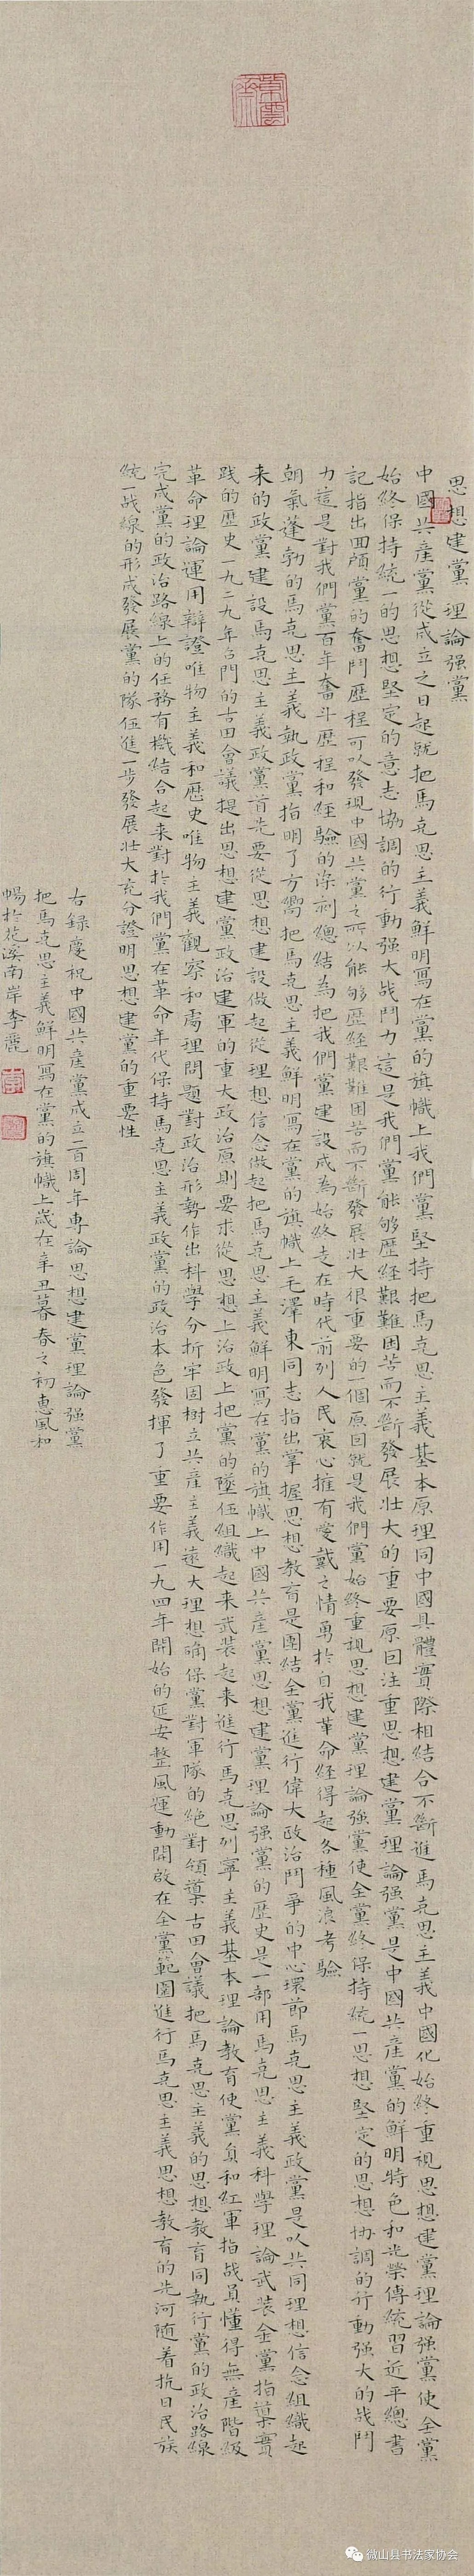 思想建黨 理論强黨
中國共産黨從成立之日起就把馬克思主義鮮明寫在黨的旗幟上我們黨堅持把馬克思主義基本原理同中國具體實際相結合不斷進馬克思主義中國化始終重視思想建黨理論强黨使全黨
始終保持統一的思想堅定的意志協調的行動强大战鬥力這是我們黨能够歷经艱難困苦而不斷發展壮大的重要原因注重思想建黨理論强黨是中國共産黨的鮮明特色和光榮傳統習近平總書
記指出回頋黨的奮鬥歷程可以發現中國共黨之所以能够歷経艱難困苦而不斷發展壮大很重要的一個原因就是我們黨始終重視思想建黨理論强黨使全黨終保持統一思想堅定的思想协調的行動强大的战鬥
力這是對我們黨百年奮斗歷程和経驗的深刻總結為把我們黨建設成為始終走在時代前列人民衷心擁有愛戴之情勇於自我革命経得起各種風浪考驗
朝氣蓬勃的馬克思主義執政黨指明了方嚮把馬克思主義鮮明寫在黨的旗幟上毛澤東同志指出掌握思想教育是團結全黨進行偉大政治鬥爭的中心環節馬克思主義政黨是以共同理想信念組織起
来的政黨建設馬克思主義政黨首先要從思想建設做起從理想信念做起把馬克思主義鮮明寫在黨的旗幟上中國共産黨思想建黨理論强黨的歷史是一部用馬克思主義科學理論武装全黨指導實
践的歷史一九二九年召開的古田會議提出思想建黨政治建軍的重大政治原則要求從思想上治政上把黨的墜伍組織起来武装起来進行馬克思列寧主義基本理論教育使黨員和紅軍指战員懂得無産階級
革命理論運用辯證唯物主義和歷史唯物主義觀察和處理問題對政治形勢作出科學分析牢固樹立共産主義遠大理想确保黨對軍隊的絶對領導古田會議把馬克思主義的思想教育同執行黨的政治路線
完成黨的政治路線上的任務有機結合起来對於我們黨在革命年代保持馬克思主義政黨的政治本色發揮了重要作用一九四年開始的延安整風運動開啟在全黨範圍進行馬克思主義思想教育的先河随着抗日民族
統一战線的形成發展黨的隊伍進一步發展壮大充分證明思想建黨的重要性
右録慶祝中國共産黨成立一百周年専論思想建黨理論强黨
把馬克思主義鮮明寫在黨的旗幟上歲在辛丑暮春之初惠風和
暢於花溪南岸李麗
微山县书法家协会